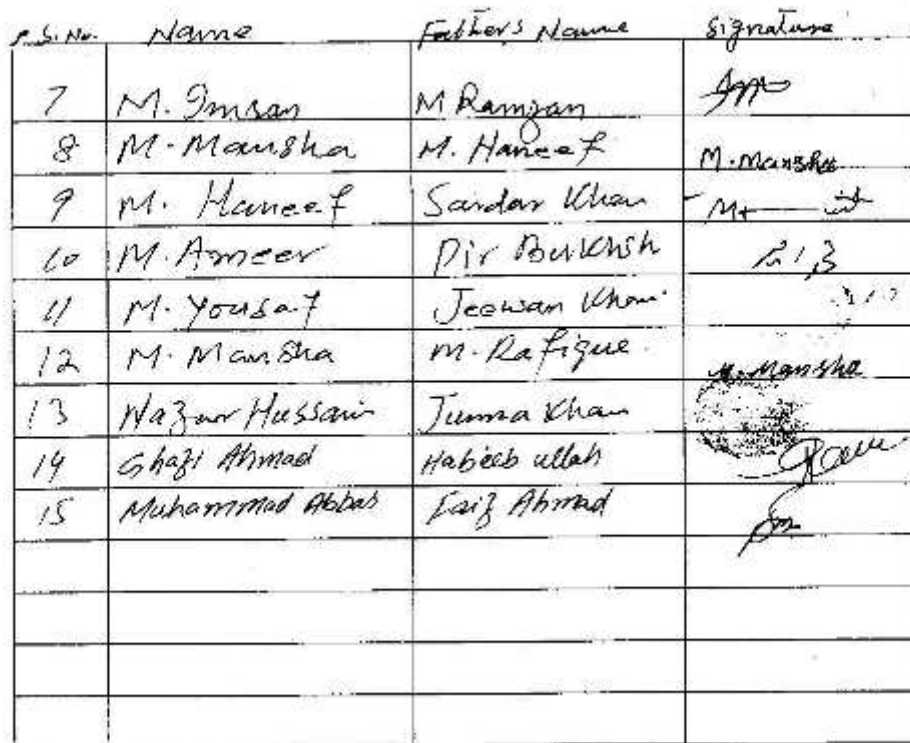 S. No. Name Father's Name Signature
7 M. Imran M Ramzan
8 M. Mansha M. Haneef M. Mansha
9 M. Haneef Sardar Khan
10 M. Ameer Pir Bukhsh
11 M. Yousaf Jeewan Khan
12 M. Mansha M. Rafique M. Mansha
13 Nazar Hussain Jumma Khan
14 Ghazi Ahmad Habeeb ullah
15 Muhammad Abbas Faiz Ahmad